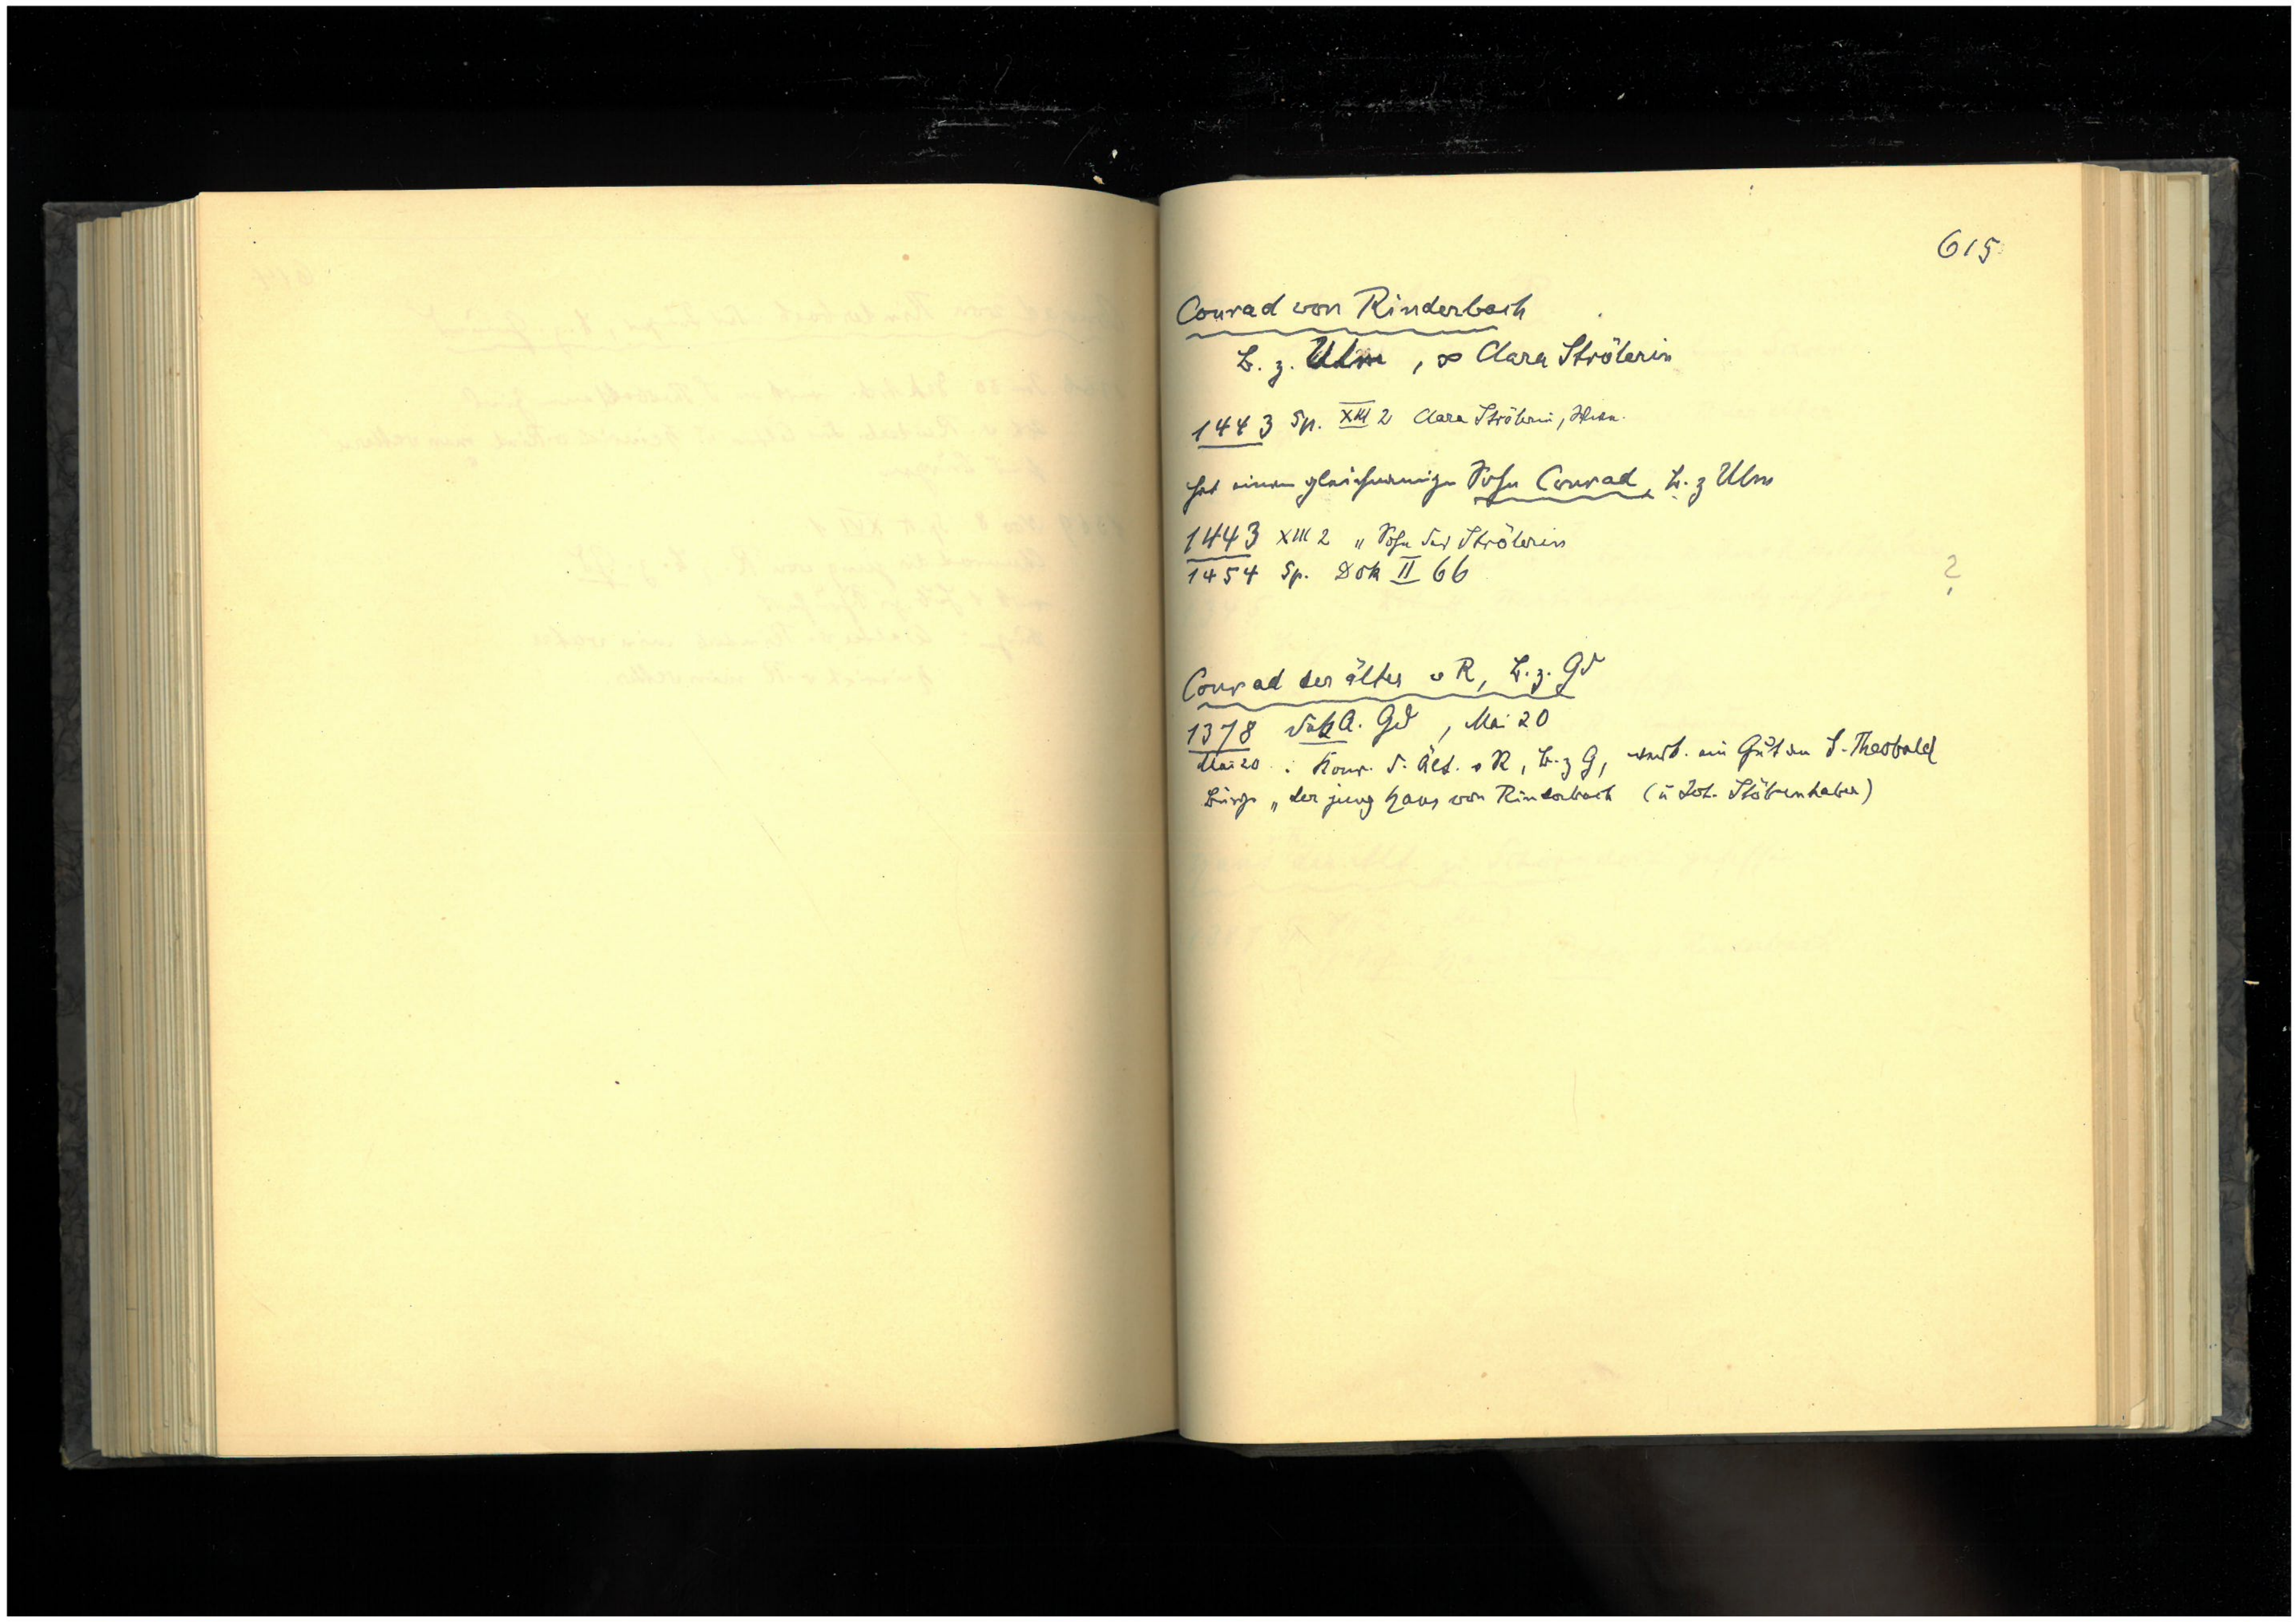 615
Conrad von Rinderbach
B. z. Ulm, ∞ Clara Strölerin
1443 Sp. XIII 2 Clara Strölerin,
hat einen gleichnamigen Sohn Conrad, B. z Ulm
1443 XIII 2 „ Sohn der Strölerin
1454 Sp. Dok II 66
?
Conrad der älter v R, B. z. Gd
1378 A. Gd, Mai 20
Mai 20 : Konr. d. Ält. v R, B. z G, ein Gut an S. Theobald
Bürge „ der jung Hans von Rinderbach (u Joh. Stöbenhaber)